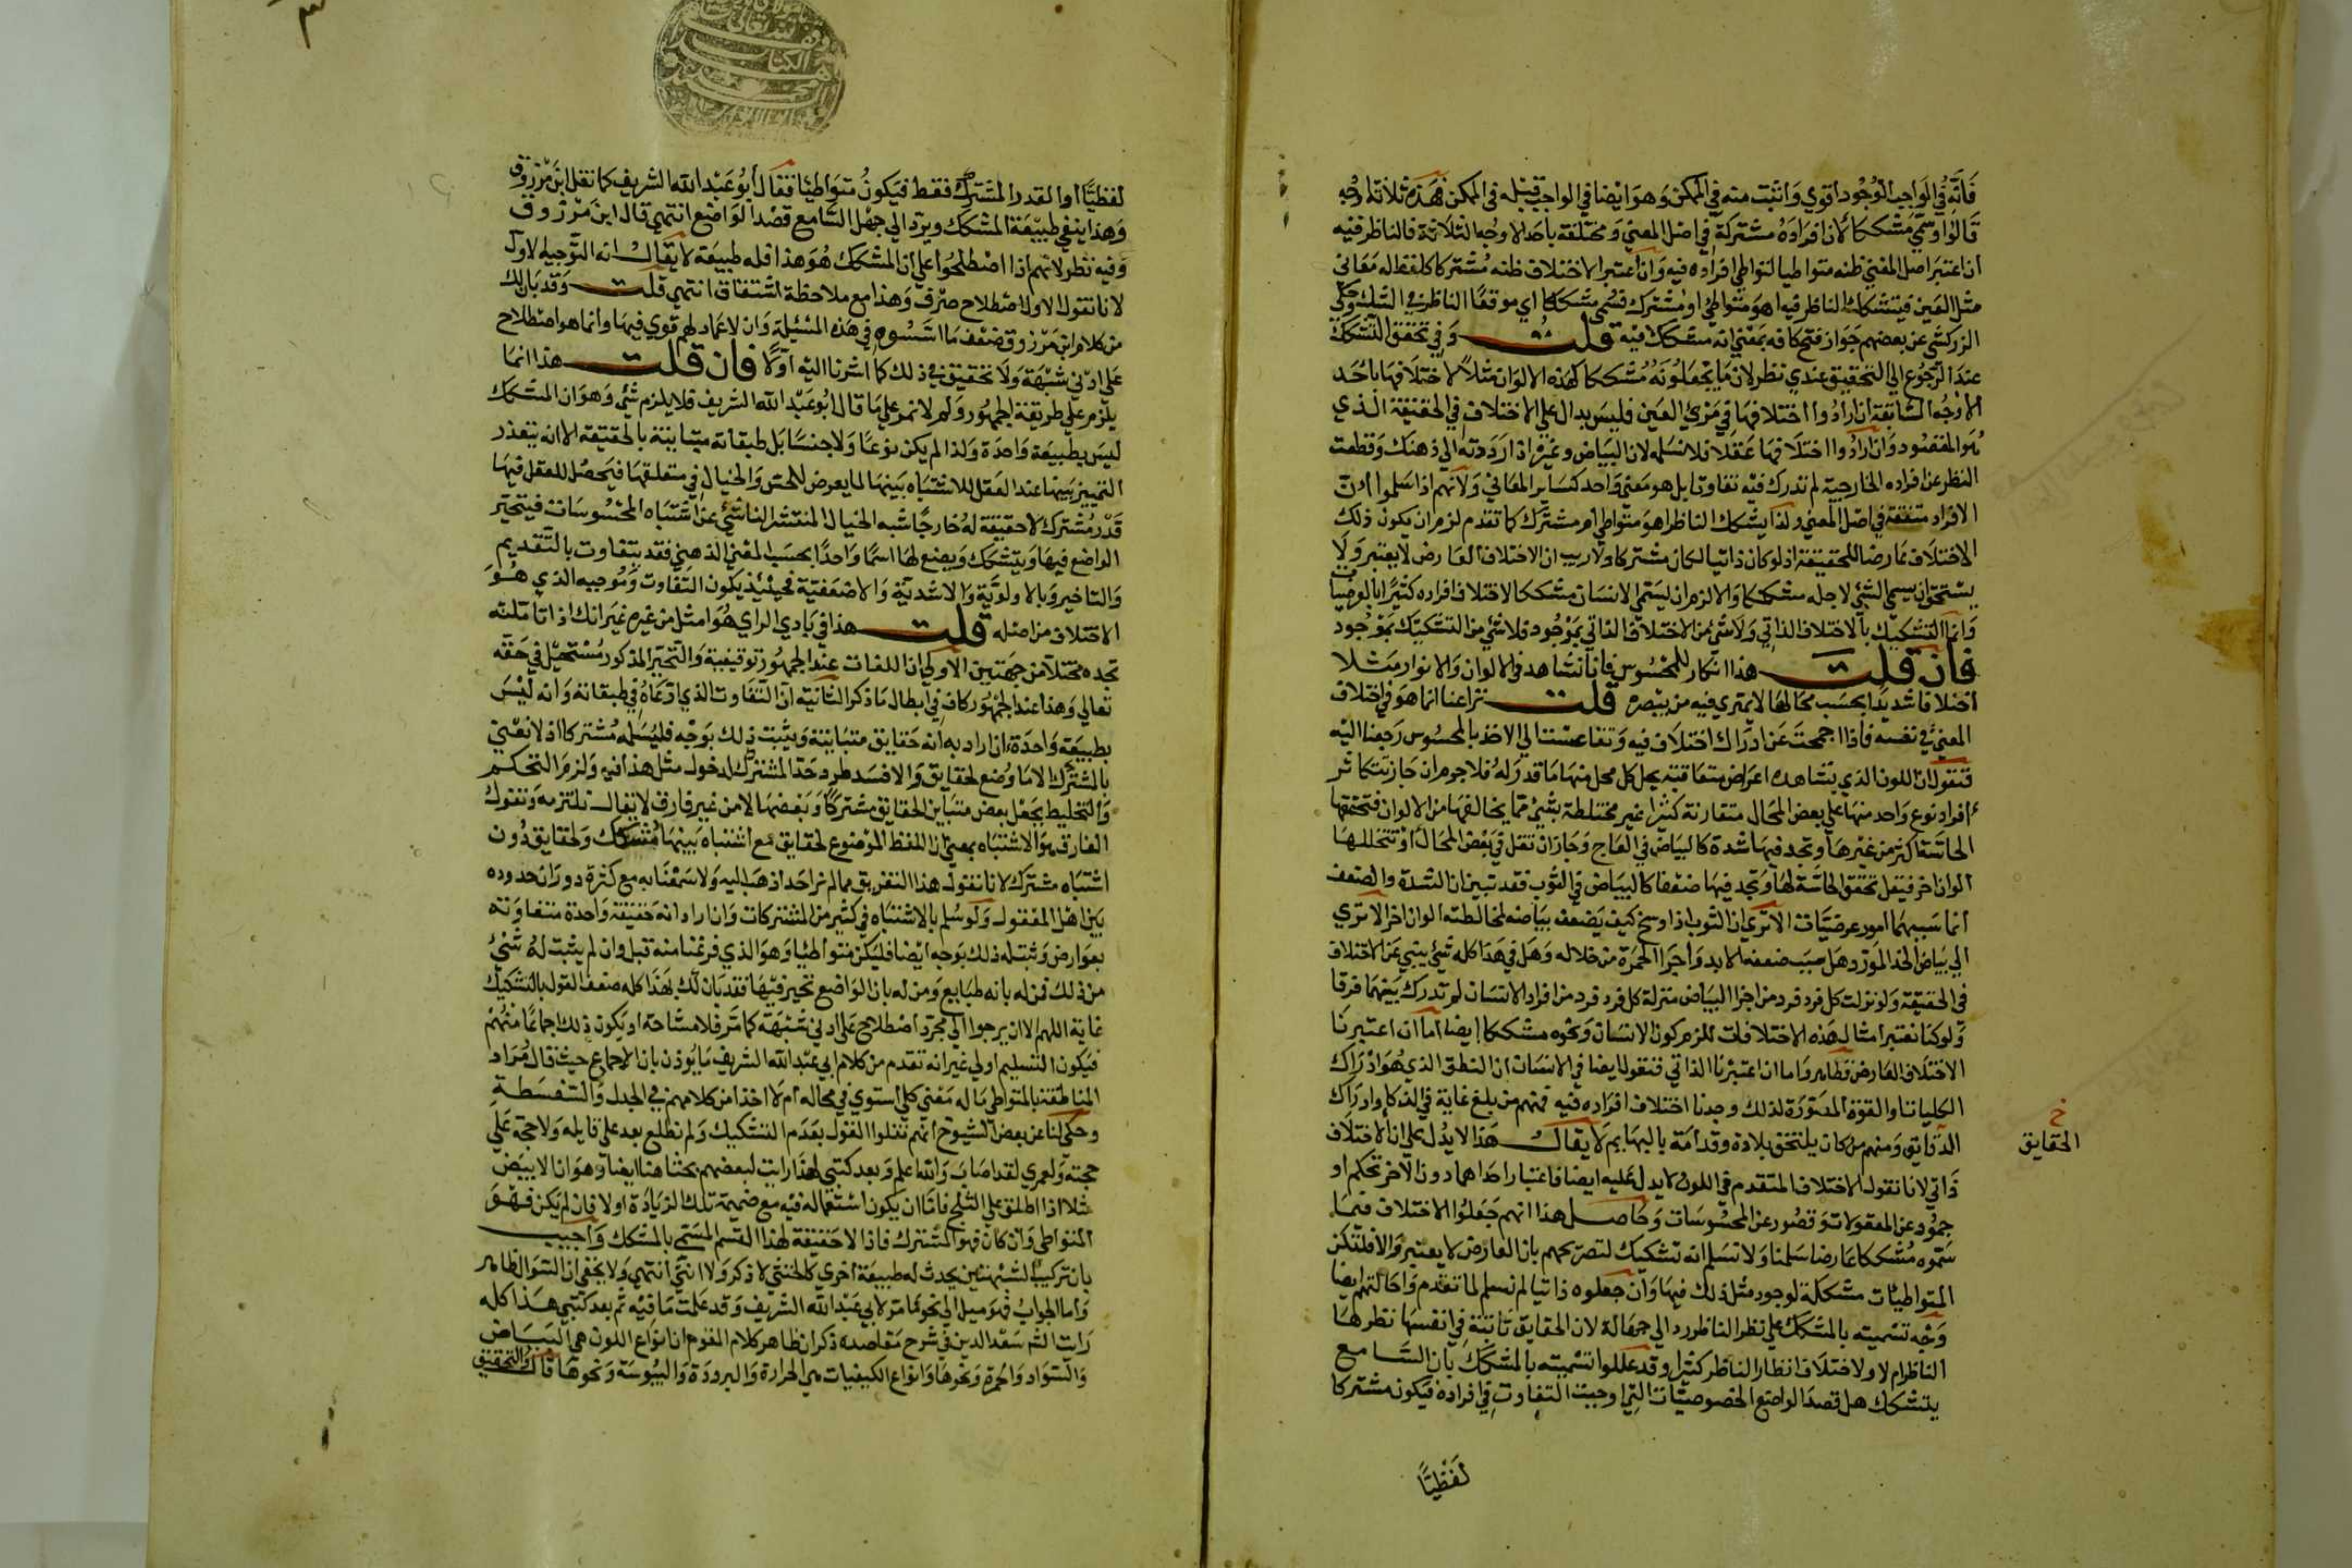 فانه في الواجب الوجود اقوي واثبت منه في الممكن وهو ايضا في الواجب قبله في الممكن فهذه ثلاثة اوجه
قالوا وسمي مشككا لان افراده مشتركة في اصل المعني ومختلفة باحد الاوجه الثلاثة فالناظر فيه
ان اعتبر اصل المعني ظنه متواطيا لتواطي افراده فيه وان اعتبر الاختلاف ظنه مشتركا كلفظ له معاني
مثل العين فيتشكك الناظر فيه اهو متواطي او مشترك فسمي مشككا اي موقعا الناظر في الشك وحكي
الزركشي عن بعضهم جواز فتح كافه بمعني انه متشكك فيه قلت وفي تحقق التشكك
عند الرجوع الي التحقيق عندي نظر لان ما يجعلونه مشككا كهذه الالوان مثلا لاختلافها باحد
الاوجه السابقة ان ارادوا اختلافها في مرئي العين فليس بدال علي الاختلاف في الحقيقة الذي
هو المقصود وان ارادوا اختلافها عقلا فلا نسلمه لان البياض وغيره اذا رددته الي ذهنك وقطعت
النظر عن افراده الخارجية لم تدرك فيه تفاوتا بل هو معني واحد كساير المعاني ولانهم اذا سلموا ان
الافراد متفقة في اصل المعني ولذا يشكك الناظر اهو متواطي ام مشترك كما تقدم لزم ان يكون ذلك
الاختلاف عارضا للحقيقة اذ لو كان ذاتيا لكان مشتركا ولا ريب ان الاختلاف العارض لا يعتبر ولا
يستحق ان يسمي الشئ لاجله مشككا والا لزم ان يسمي الانسان مشككا لاختلاف افراده كثيرا بالعرضيات
وانما التشكيك بالاختلاف الذاتي ولا شئ من الاختلاف الذاتي بموجود فلا شئ من التشكيك بموجود
فان قلت هذا انكار للمحسوس فانا نشاهد في الالوان والانوار مثلا
اختلافا شديدا بحسب محالها لا يمتري فيه من يبصره قلت نزاعنا انما هو في اختلاف
المعني في نفسه فاذا جمحت عن ادراك اختلاف فيه وتقاعست الي الاخذ بالمحسوس رجعنا اليه
فنقول ان اللون الذي نشاهده اعراض متعاقبة يحل كل محل منها ما قدر له فلا جرم ان جاز تتكاثر
افراد نوع واحد منها علي بعض المحال متقارنة كثرا غير مختلطة بشئ مما يخالفها من الالوان فتحققها
الحاسة اكثر من غيرها وتجد فيها شدة كالبياض في العاج وجاز ان تقل في بعض المحال او تتخللها
الوان اخر فيقل تحقق الحاسة لها وتجد فيها ضعفا كالبياض في الثوب فقد تبين ان الشدة والضعف
انما سببهما امور عرضيات الا تري ان الثوب اذا وسخ كيف يضعف بياضه لمخالطته الوان اخر الا تري
الي بياض الخد المورد هل سبب ضعفه الا بدو اجزا الحمرة من خلاله وهل في هذا كله شئ ينبي عن الاختلاف
في الحقيقة ولو نزلت كل فرد فرد من اجزا البياض منزلة كل فرد فرد من افراد الانسان لم تدرك بينهما فرقا
ولو كنا نعتبر امثال هذه الاختلافات للزم كون الانسان ونحوه مشككا ايضا اما ان اعتبرنا
الاختلاف العارض فظاهر واما ان اعتبرنا الذاتي فنقول ايضا في الانسان ان النطق الذي هو ادراك
الكليات والقوة المصورة لذلك وجدنا اختلاف افراده فيه فمنهم من بلغ غاية في الذكا وادراك
الدقايق ومنهم من كان يلتحق بلادة وفدامة بالبهايم لا يقال هذا لا يدل علي ان الاختلاف
خ
الحقايق
ذاتي لانا نقول الاختلاف المتقدم في اللون لا يدل عليه ايضا فاعتبار احداهما دون الاخر تحكم او
جمود عن المعقولات وقصور عن المحسوسات وحاصل هذا انهم جعلوا الاختلاف فيما
سموه مشككا عارضا سلمنا ولا نسلم انه تشكيك لتصريحهم بان العارض لا يعتبر والا فلتكن
المتواطيات مشككة لوجود مثل ذلك فيها وان جعلوه ذاتيا لم نسلم لما تقدم واحالتهم ايضا
وجه تسميته بالمشكك علي نظر الناظر رد الي جهالة لان الحقايق ثابتة في انفسها نظر ها
الناظر ام لا ولاختلاف انظار الناظر كثيرا وقد عللوا تسميته بالمشكك بان السامع
يتشكك هل قصد الواضع الخصوصيات التي اوجبت التفاوت في افراده فيكون مشتركا
لفظيا
لفظيا او القدر المشترك فقط فيكون متواطيا فقال ابو عبد الله الشريف كما نقل ابن مرزوق
وهذا ينفي طبيعة المشكك ويرد الي جهل السامع قصد الواضع انتهي قال ابن مرزوق
وفيه نظر لانهم اذا اصطلحوا علي ان المشكك هو هذا فله طبيعة لا يقال انه التوجيه الاول
لانا نقول الاول اصطلاح صرف وهذا مع ملاحظة اشتقاق انتهي قلت وقد بان لك
من كلام ابن مرزوق ضعف ما اسسوه في هذه المسئلة وان لا عماد لهم قوي فيها وانما هو اصطلاح
علي ادني شبهة ولا تحقيق في ذلك كما اشرنا اليه اولا فان قلت هذا انما
يلزم علي طريقة الجمهور ولم لا نمر علي ما قال ابو عبد الله الشريف فلا يلزم شئ وهو ان المشكك
ليس بطبيعة واحدة ولذا لم يكن نوعا ولا جنسا بل طبقاته متباينة بالحقيقة الا انه يتعذر
التمييز بينها عند العقل للاشتباه بينها لما يعرض للحس والخيال في متعلقها فيحصل للعقل فيها
قدر مشترك لا حقيقة له خارجا شبه الخيال المنتشر الناشئ عن اشتباه المحسوسات فيتحير
الواضع فيها ويتشكك ويضع لها اسما واحدا بحسب المعني الذهني فقد يتفاوت بالتقديم
والتاخير وبالاولوية والاشدية والاضعفية فحينئذ يكون التفاوت وموجبه الذي هو
الاختلاف من اصله قلت هذا في بادي الراي هو امثل من غيره غير انك اذا تاملته
تجده مختلا من جهتين الاولي ان اللغات عند الجمهور توقيفية والتحير المذكور مستحيل في حقه
تعالي وهذا عند الجمهور كاف في ابطال ما ذكر الثانية ان التفاوت الذي ادعاه في طبقاته وانه ليس
بطبيعة واحدة ان اراد به انه حقايق متباينة ويثبت ذلك بوجه فليسلمه مشتركا اذ لا نعني
بالمشترك الا ما وضع لحقايق والا فسد طرد حد المشترك لدخول مثل هذا فيه ولزم التحكم
والتخليط بجعل بعض متباين الحقايق مشتركا وبعضها لا من غير فارق لا يقال نلتزمه ونقول
الفارق هو الاشتباه بمعني ان اللفظ الموضوع لحقايق مع اشتباه بينها مشكك ولحقايق دون
اشتباه مشترك لانا نقول هذا التفريق مما لم نر احدا ذهب اليه ولا سمعنا به مع كثرة دوران حدوده
بين اهل المعقول ولو سلم بالاشتباه في كثير من المشتركات وان اراد انه حقيقة واحدة متفاوتة
بعوارض وثبت له ذلك بوجه ايضا فليكن متواطيا وهو الذي فرغنا منه قبل وان لم يثبت له شئ
من ذلك فمن له بانه طبايع ومن له بان الواضع تحير فيها فقد بان لك بهذا كله ضعف القول بالتشكيك
غاية اللهم الا ان يرجوا الي مجرد اصطلاح علي ادني شبهة كما مر فلا مشاحة او يكون ذلك اجماعا منهم
فيكون التسليم اولي غير انه تقدم من كلام ابي عبد الله الشريف ما يوذن بان لا اجماع حيث قال مراد
المناطقة بالمتواطي ما له معني كلي استوي في محاله ام لا اخذا من كلامهم في الجدل والسفسطة
وحكي لنا عن بعض الشيوخ انهم نقلوا القول بعدم التشكيك ولم نطلع بعد علي قايله ولا حجة علي
حجته ولعمري لقد اصاب والله اعلم وبعد كتبي لهذا رايت لبعضهم بحثا هنا ايضا وهو ان الابيض
مثلا اذا اطلق علي الثلج فاما ان يكون استعماله فيه مع ضميمة تلك الزيادة او لا فان لم يكن فهو
المتواطي وان كان فهو المشترك فاذا لا حقيقة لهذا القسم المسمي بالمشكك واجيب
بان تركيب الشبهتين يحدث له طبيعة اخري كالخنثي لا ذكر ولا انثي انتهي ولا يخفي ان السؤال ظاهر
واما الجواب فهو ميل الي نحو ما مر لابي عبد الله الشريف وقد علمت ما فيه ثم بعد كتبي هذا كله
رايت الشيخ سعد الدين في شرح مقاصده ذكر ان ظاهر كلام القوم ان انواع اللون هي البياض
والسواد والحمرة ونحوها وانواع الكيفيات هي الحرارة والبرودة واليبوسة ونحوها قال والتحقيق